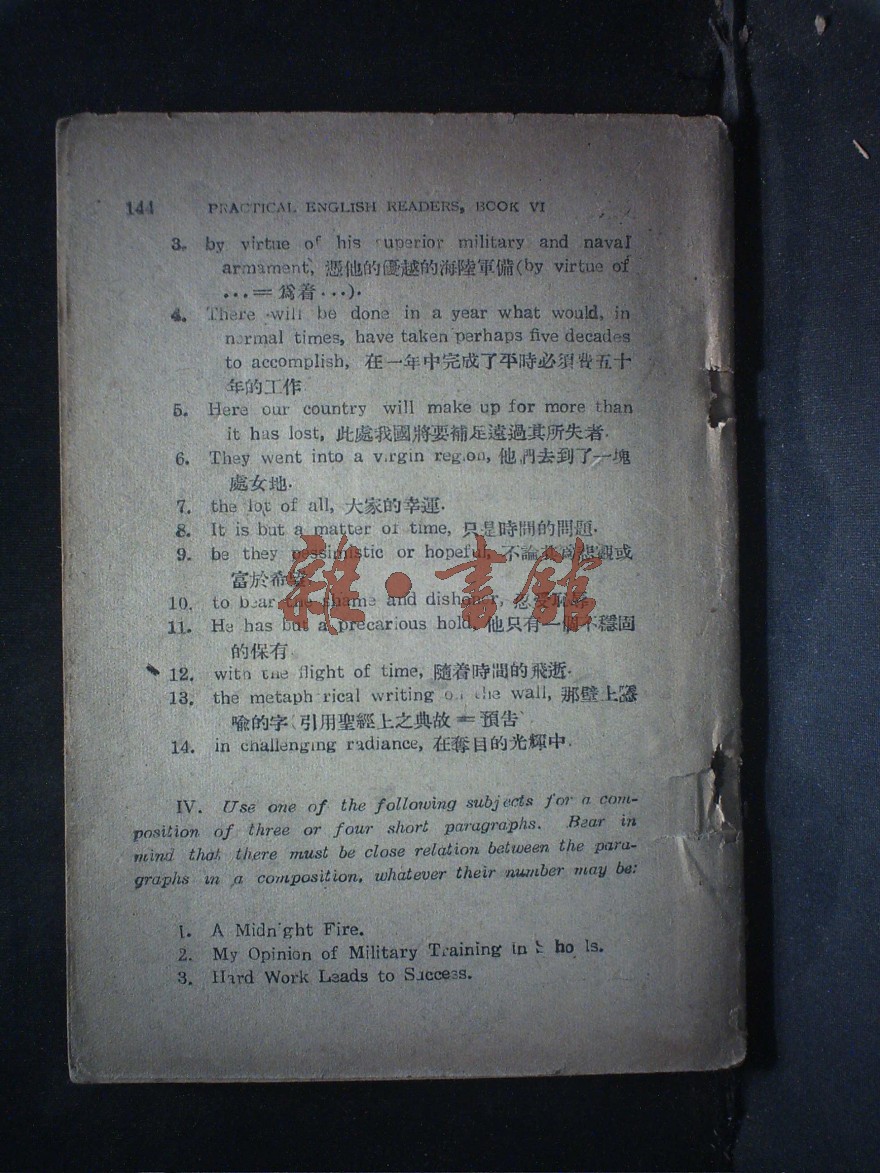 144 PRACTICAL ENGLISH READERS, BOOK VI
3. by virtue of his superior military and naval
armament, 憑他的優越的海陸軍備(by virtue of
...＝爲着...).
4. There will be done in a year what would, in
normal times, have taken perhaps five decades
to accomplish, 在一年中完成了平時必須費五十
年的工作
5. Here our country will make up for more than
it has lost, 此處我國將要補足遠過其所失者.
6. They went into a virgin region, 他們去到了一塊
處女地.
7. the lot of all, 大家的幸運.
8. It is but a matter of time, 只是時間的問題.
9. be they pessimistic or hopeful, 不論 悲觀或
富於希望
10. to bear the shame and dishonor,
11. He has but a precarious hold, 他只有一個不穩固
的保有.
12. with the flight of time, 隨着時間的飛逝.
13. the metaphorical writing on the wall, 那壁上隱
喩的字(引用聖經上之典故＝預告)
14. in challenging radiance, 在奪目的光輝中.
IV. Use one of the following subjects for a com-
position of three or four short paragraphs. Bear in
mind that there must be close relation between the para-
graphs in a composition, whatever their number may be:
1. A Midnight Fire.
2. My Opinion of Military Training in Schools.
3. Hard Work Leads to Success.
雜·書館